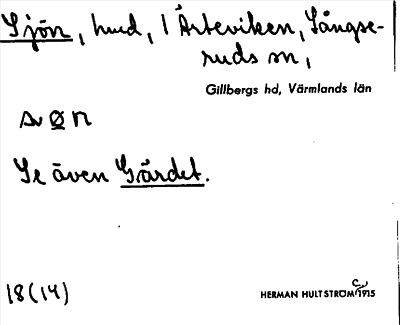 Sjön, hmd, i Årteviken, Långse-
ruds sn,
Gillbergs hd, Värmlands län
sv Ø n
Se även Gärdet.
18(14)
HERMAN HULTSTRÖM 1915